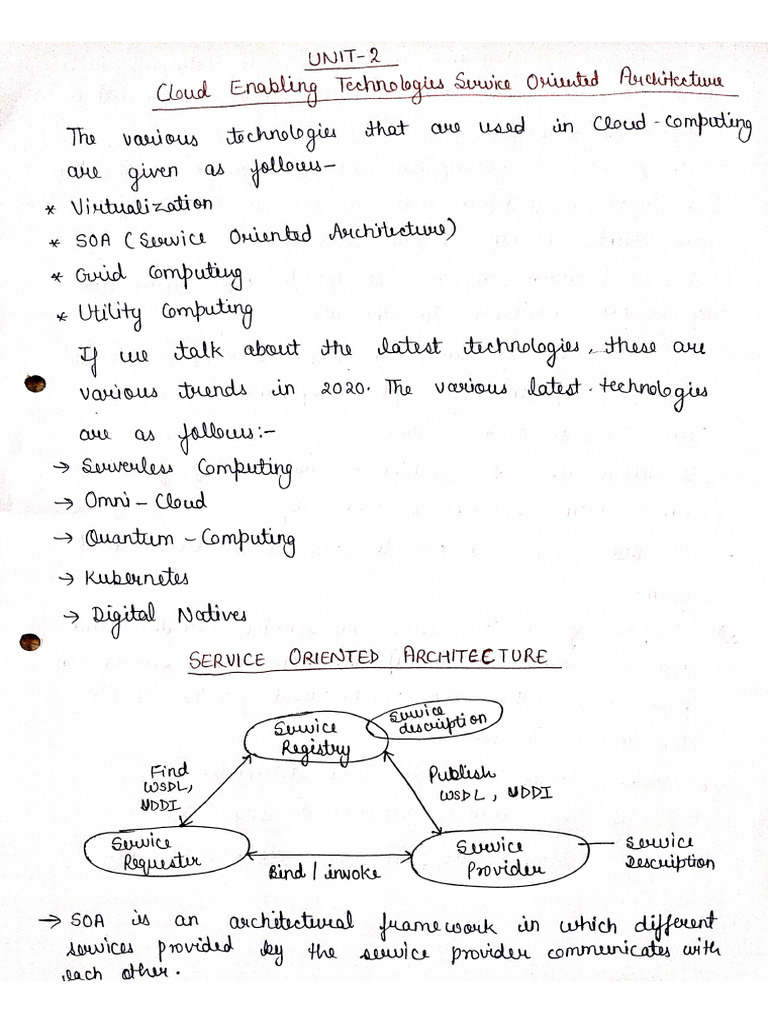 UNIT-2
Cloud Enabling Technologies Service Oriented Architecture
The various technologies that are used in Cloud-Computing
are given as follows-
* Virtualization
* SOA (Service Oriented Architecture)
* Grid Computing
* Utility Computing
If we talk about the latest technologies, these are
various trends in 2020. The various latest technologies
are as follows:-
→ Serverless Computing
→ Omni-Cloud
→ Quantum-Computing
→ Kubernetes
→ Digital Natives
SERVICE ORIENTED ARCHITECTURE
Service
Registry
Service
description
Find
WSDL,
UDDI
Publish
WSDL, UDDI
Service
Requester
Bind / invoke
Service
Provider
Service
Description
→ SOA is an architectural framework in which different
services provided by the service provider communicates with
each other.